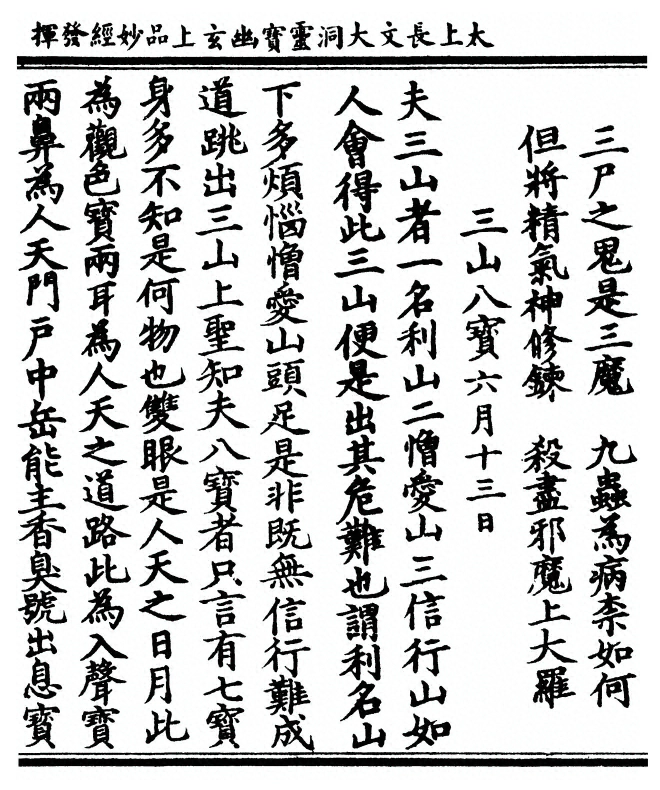 太上長文大洞靈寶幽玄上品妙經發揮
三尸之鬼是三魔　九蟲為病柰如何
但將精氣神修鍊　殺盡邪魔上大羅
三山八寶六月十三日
夫三山者一名利山二憎愛山三信行山如
人會得此三山便是出其危難也謂利名山
下多煩惱憎愛山頭足是非既無信行難成
道跳出三山上聖知夫八寶者只言有七寶
身多不知是何物也雙眼是人天之日月此
為觀色寶兩耳為人天之道路此為入聲寶
兩鼻為人天門戶中岳能主香臭號出息寶